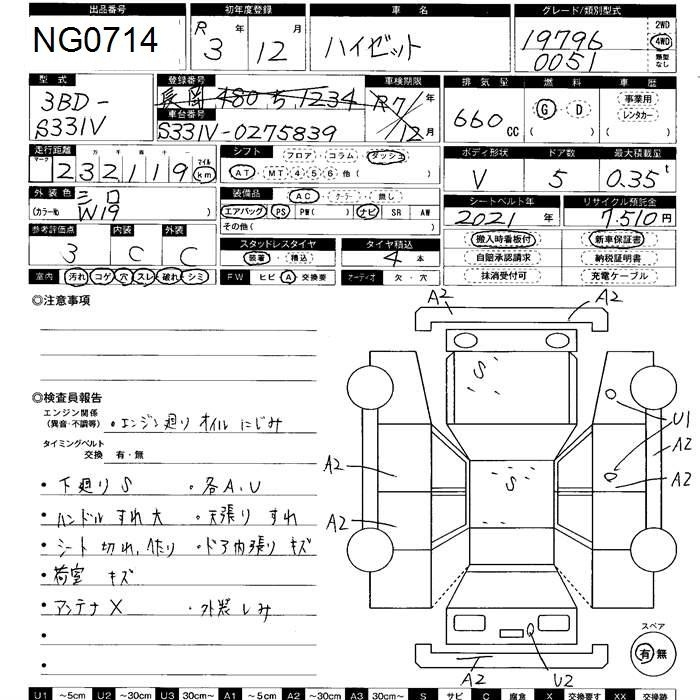 出品番号 初年度登録 車名 グレード/類別型式
NG0714 R3年 12月 ハイゼット 19796 0051 2WD 4WD 類型なし
型式 登録番号 車検期限 排気量 燃料 車歴
3BD-S331V 長岡 480 ち 1234 R7年 12月 660CC G・D ( ) 事業用 レンタカー ( )
車台番号
S331V-0275839
走行距離 シフト ボディ形状 ドア数 最大積載量
マーク 十万 万 千 百 十 一
232119 マイル km フロア・コラム・ダッシュ V 5 0.35t
AT・MT 4 5 6 他( )
外装色 装備品 シートベルト年 リサイクル預託金
シロ AC・クーラー・無し 2021年 7.510円
(カラーNo W19 ) エアバッグ PS PW( ) ナビ SR AW
その他( )
参考評価点 内装 外装 スタッドレスタイヤ タイヤ積込 搬入時看板付 新車保証書
3 C C 装着・積込 4本 自賠承認請求 納税証明書
室内 汚れ コゲ 穴 スレ 破れ シミ FW ヒビ A 交換要 オーディオ 欠・穴 抹消受付可 充電ケーブル
◎注意事項
◎検査員報告
エンジン関係
(異音・不調等) ・エンジン廻り オイル にじみ
タイミングベルト
交換 有・無
・下廻り S ・各A、U
・ハンドル すれ 大 ・天張り すれ
・シート 切れ, ・ドア内張り キズ
・荷室 キズ
・アンテナ X ・外装 しみ
A2 A2
S
U1
A2
A2 A2
S
A2
スペア
有 無
A2 U2
U1 ～5cm U2 ～30cm U3 30cm～ A1 ～5cm A2 ～30cm A3 30cm～ S サビ C 腐食 X 交換要す XX 交換跡